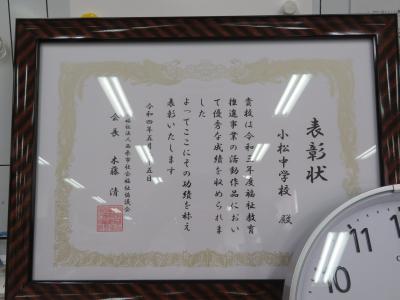 表彰状
小松中学校 殿
貴校は令和三年度福祉教育
推進事業の活動作品におい
て優秀な成績を収められま
した
よってここにその功績を称え
表彰いたします
令和四年五月 五日
福祉法人西条市社会福祉協議会
会長 木藤 清
11
10